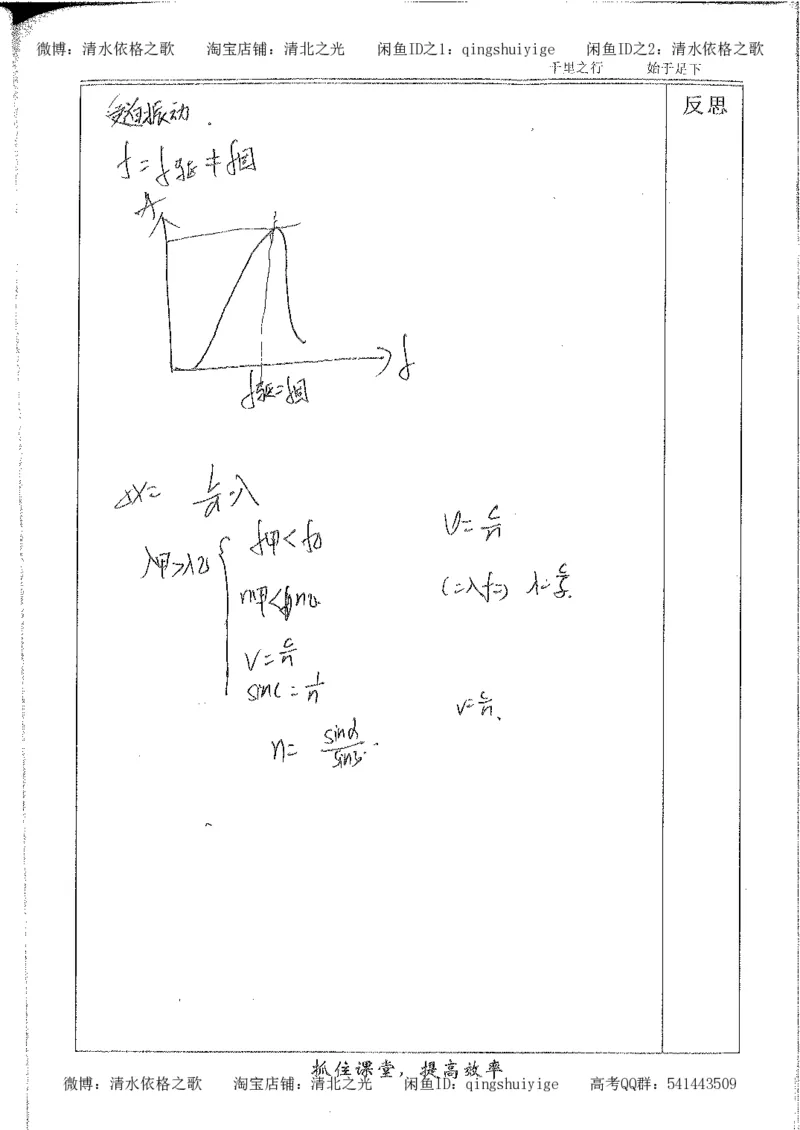 微博：清水依格之歌 淘宝店铺：清北之光 闲鱼ID之1：qingshuiyige 闲鱼ID之2：清水依格之歌
千里之行 始于足下
反思
受迫振动.
f=f驱≠f固
A
f
f驱=f固
ΔX= L/d·λ
λ甲>λ乙
f甲<f乙
n甲<n乙
V=c/n
sinC=1/n
n= sinα/sinβ.
υ=c/n
C=λf=> λ=c/f.
v=c/n.
抓住课堂，提高效率
微博：清水依格之歌 淘宝店铺：清北之光 闲鱼ID：qingshuiyige 高考QQ群：541443509